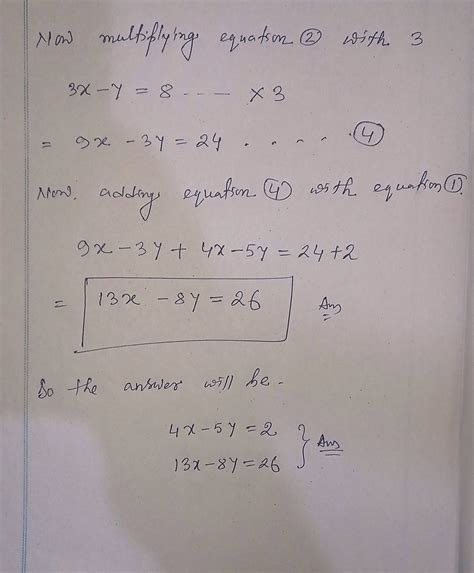 Now multiplying equation ② with 3
3x - y = 8 --- × 3
= 9x - 3y = 24 . . . . . ④
Now, adding equation ④ with equation ①.
9x - 3y + 4x - 5y = 24 + 2
= 13x - 8y = 26 Ans
So the answer will be -
4x - 5y = 2
13x - 8y = 26 } Ans